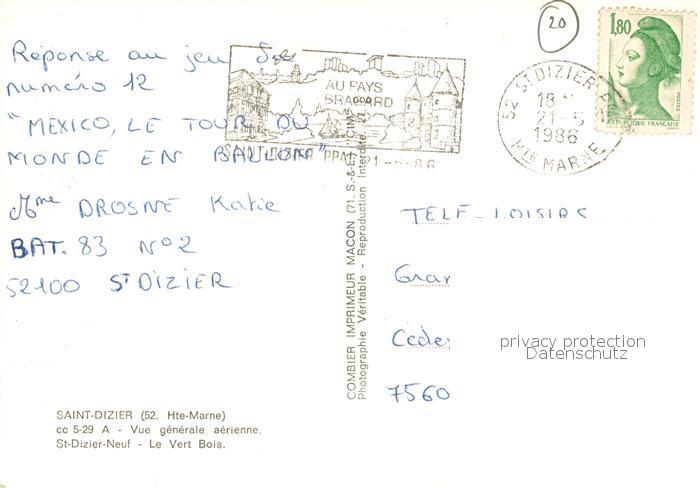 20
1,80
POSTES
REPUBLIQUE FRANCAISE
52 ST DIZIER
18
21-5
1986
HTE MARNE
AU PAYS
BRAGARD
SAINT-DIZIER PPAL 21-5-86
Réponse au jeu
numéro 12
"MEXICO, LE TOUR DU
MONDE EN BALLON"
Mme DROSNE Katie
BAT. 83 N°2
52100 ST DIZIER
TELE-LOISIRS
Grar
Cedex
7560
privacy protection
Datenschutz
COMBIER IMPRIMEUR MACON (71. S.-&-L.) CIM
Photographie Véritable - Reproduction Interdite.
SAINT-DIZIER (52. Hte-Marne)
cc 5-29 A - Vue générale aérienne.
St-Dizier-Neuf - Le Vert Bois.